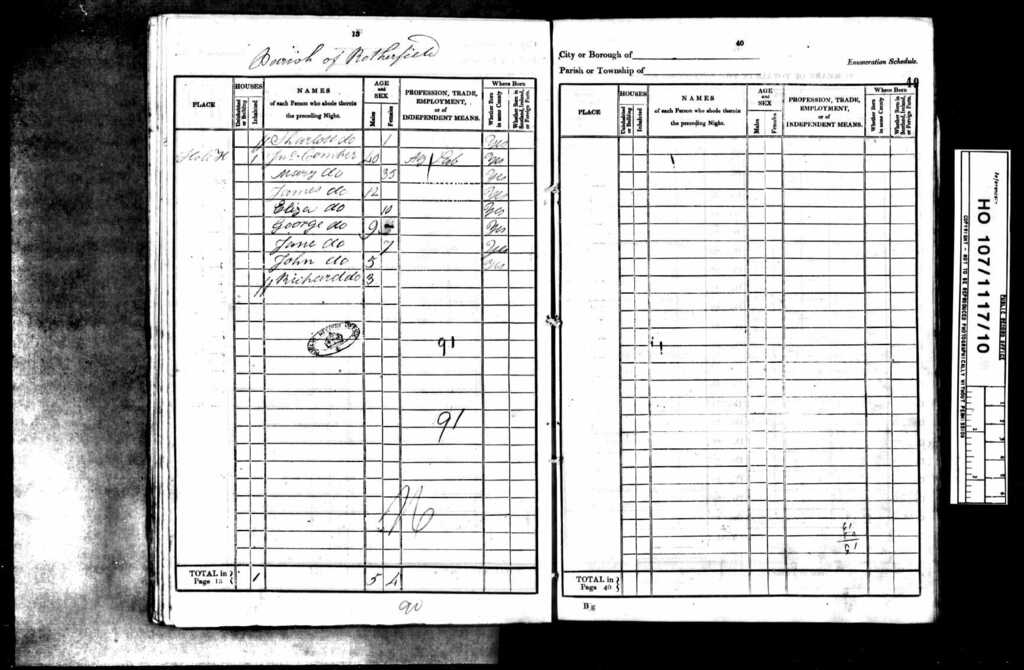 13
Parish of Rotherfield
PLACE
HOUSES
Uninhabited or Building
Inhabited
NAMES
of each Person who abode therein
the preceding Night.
AGE and SEX
Males
Females
PROFESSION, TRADE,
EMPLOYMENT,
or of
INDEPENDENT MEANS.
Where Born
Whether Born in same County
Whether Born in Scotland, Ireland, or Foreign Parts.
do 1 Yes
1 Comber 40 Ag Lab Yes
Mary do 35 Yes
James do 12 Yes
Eliza do 10 Yes
George do 9 Yes
Jane do 7 Yes
John do 5 Yes
Richard do 3
91
91
TOTAL in
Page 13
1 5 4
90
40
City or Borough of
Parish or Township of
Enumeration Schedule.
40
PLACE
HOUSES
Uninhabited or Building
Inhabited
NAMES
of each Person who abode therein
the preceding Night.
AGE and SEX
Males
Females
PROFESSION, TRADE,
EMPLOYMENT,
or of
INDEPENDENT MEANS.
Where Born
Whether Born in same County
Whether Born in Scotland, Ireland, or Foreign Parts.
TOTAL in
Page 40
B g
Reference:-
HO 107/1117/10
PUBLIC RECORD OFFICE
COPYRIGHT - NOT TO BE REPRODUCED PHOTOGRAPHICALLY WITHOUT PERMISSION